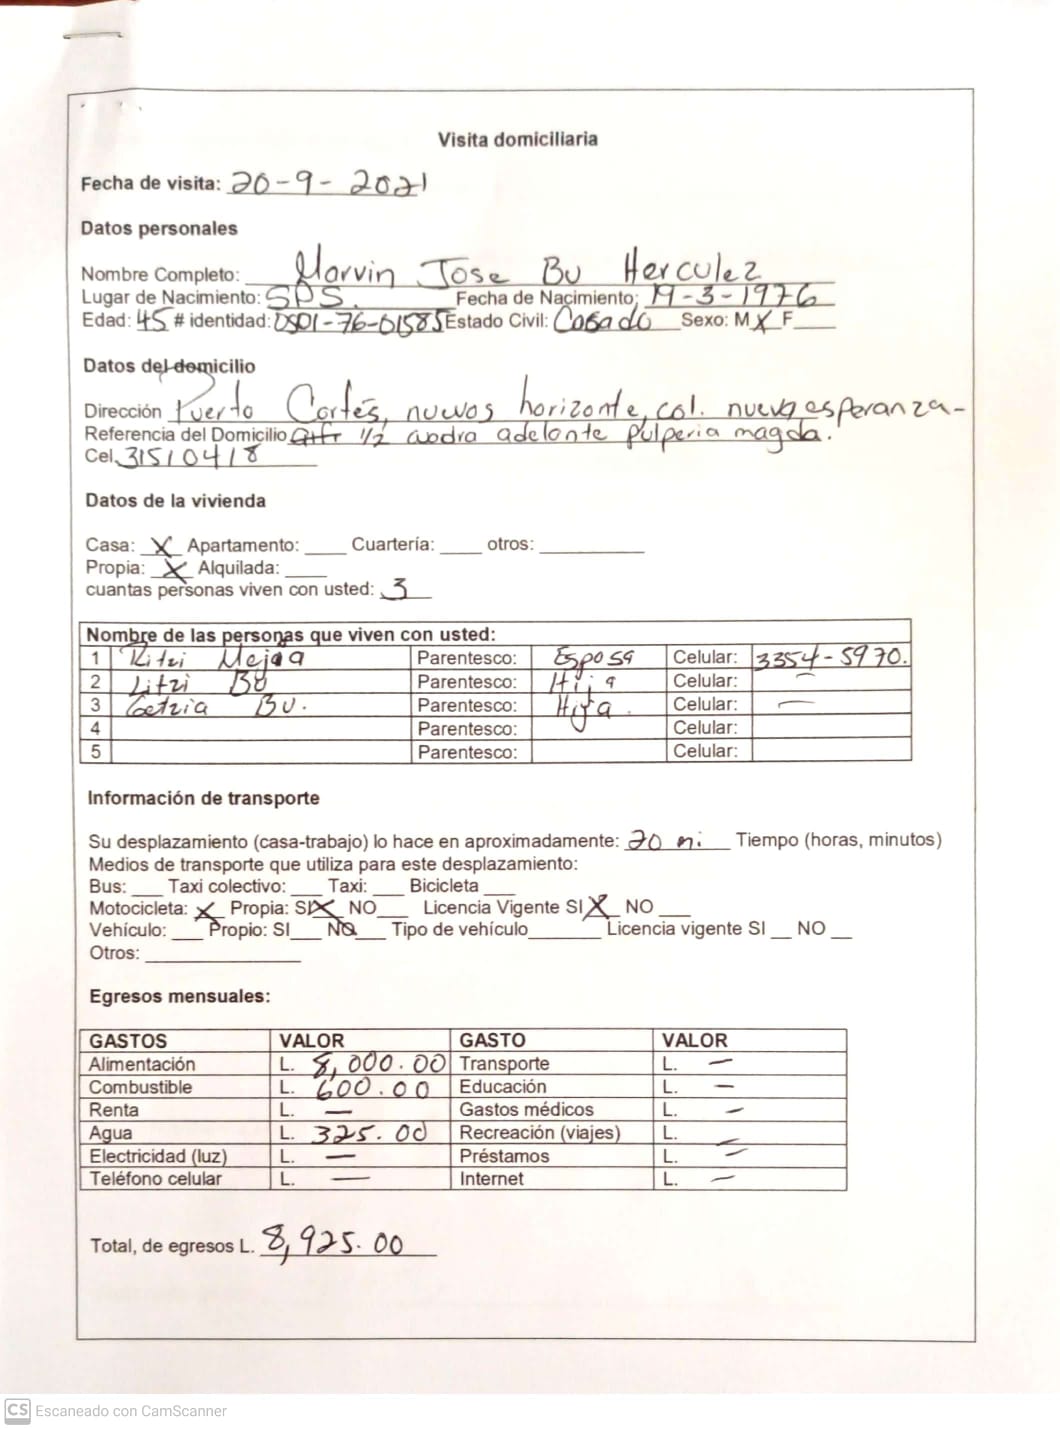 Visita domiciliaria
Fecha de visita: 20-9-2021
Datos personales
Nombre Completo: Marvin Jose Bu Herculez
Lugar de Nacimiento: SPS. Fecha de Nacimiento: 19-3-1976
Edad: 45 # identidad: 0501-76-01585 Estado Civil: Casado Sexo: M X F
Datos del domicilio
Dirección Puerto Cortés, nuevos horizonte, col. nueva esperanza-
Referencia del Domicilio 1/2 cuadra adelante pulperia magda.
Cel. 31510418
Datos de la vivienda
Casa: X Apartamento: ____ Cuartería: ____ otros: ____
Propia: X Alquilada: ____
cuantas personas viven con usted: 3
Nombre de las personas que viven con usted:
1 Ritzi Mejia Parentesco: Esposa Celular: 3354-5970.
2 Litzi Bu Parentesco: Hija Celular: —
3 Bu. Parentesco: Hija. Celular: —
4 Parentesco: Celular:
5 Parentesco: Celular:
Información de transporte
Su desplazamiento (casa-trabajo) lo hace en aproximadamente: 20 mi. Tiempo (horas, minutos)
Medios de transporte que utiliza para este desplazamiento:
Bus: ___ Taxi colectivo: ___ Taxi: ___ Bicicleta ___
Motocicleta: X Propia: SI X NO ___ Licencia Vigente SI X NO ___
Vehículo: ___ Propio: SI ___ NO ___ Tipo de vehículo ___ Licencia vigente SI __ NO __
Otros: ____
Egresos mensuales:
GASTOS VALOR GASTO VALOR
Alimentación L. 8,000.00 Transporte L. —
Combustible L. 600.00 Educación L. —
Renta L. — Gastos médicos L. —
Agua L. 325.00 Recreación (viajes) L. —
Electricidad (luz) L. — Préstamos L. —
Teléfono celular L. — Internet L. —
Total, de egresos L. 8,925.00
CS Escaneado con CamScanner